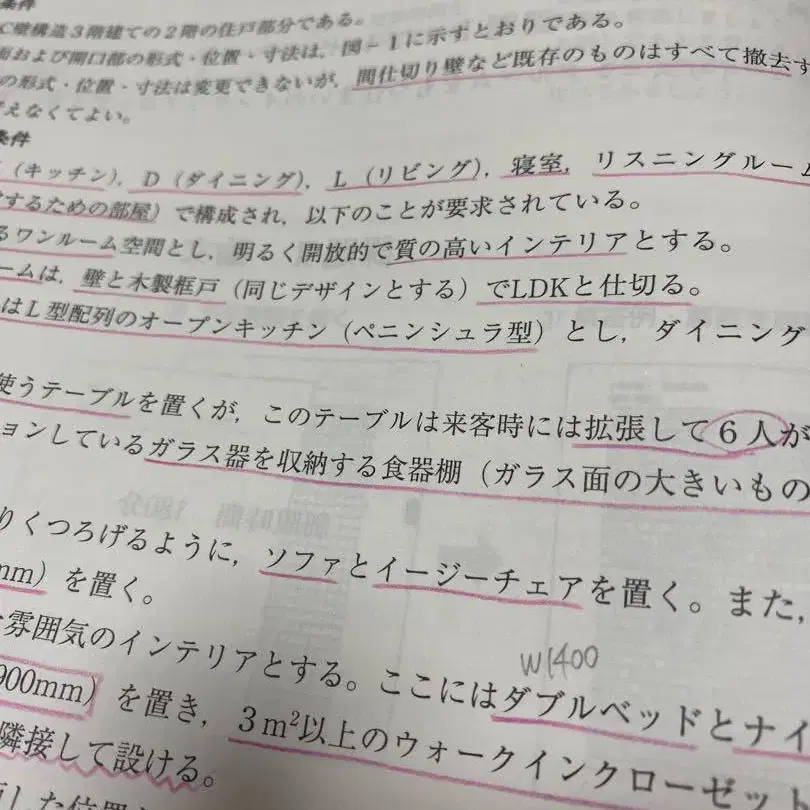 条件
C壁構造3階建ての2階の住戸部分である。
面および開口部の形式・位置・寸法は，図－1に示すとおりである。
の形式・位置・寸法は変更できないが，間仕切り壁など既存のものはすべて撤去す
えなくてよい。
条件
（キッチン），D（ダイニング），L（リビング），寝室，リスニングルーム
するための部屋）で構成され，以下のことが要求されている。
るワンルーム空間とし，明るく開放的で質の高いインテリアとする。
ームは，壁と木製框戸（同じデザインとする）でLDKと仕切る。
はL型配列のオープンキッチン（ペニンシュラ型）とし，ダイニング
使うテーブルを置くが，このテーブルは来客時には拡張して6人が
ョンしているガラス器を収納する食器棚（ガラス面の大きいもの
りくつろげるように，ソファとイージーチェアを置く。また，
mm）を置く。
雰囲気のインテリアとする。ここにはダブルベッドとナイ
W1400
900mm）を置き，3m²以上のウォークインクローゼット
隣接して設ける。
した位置